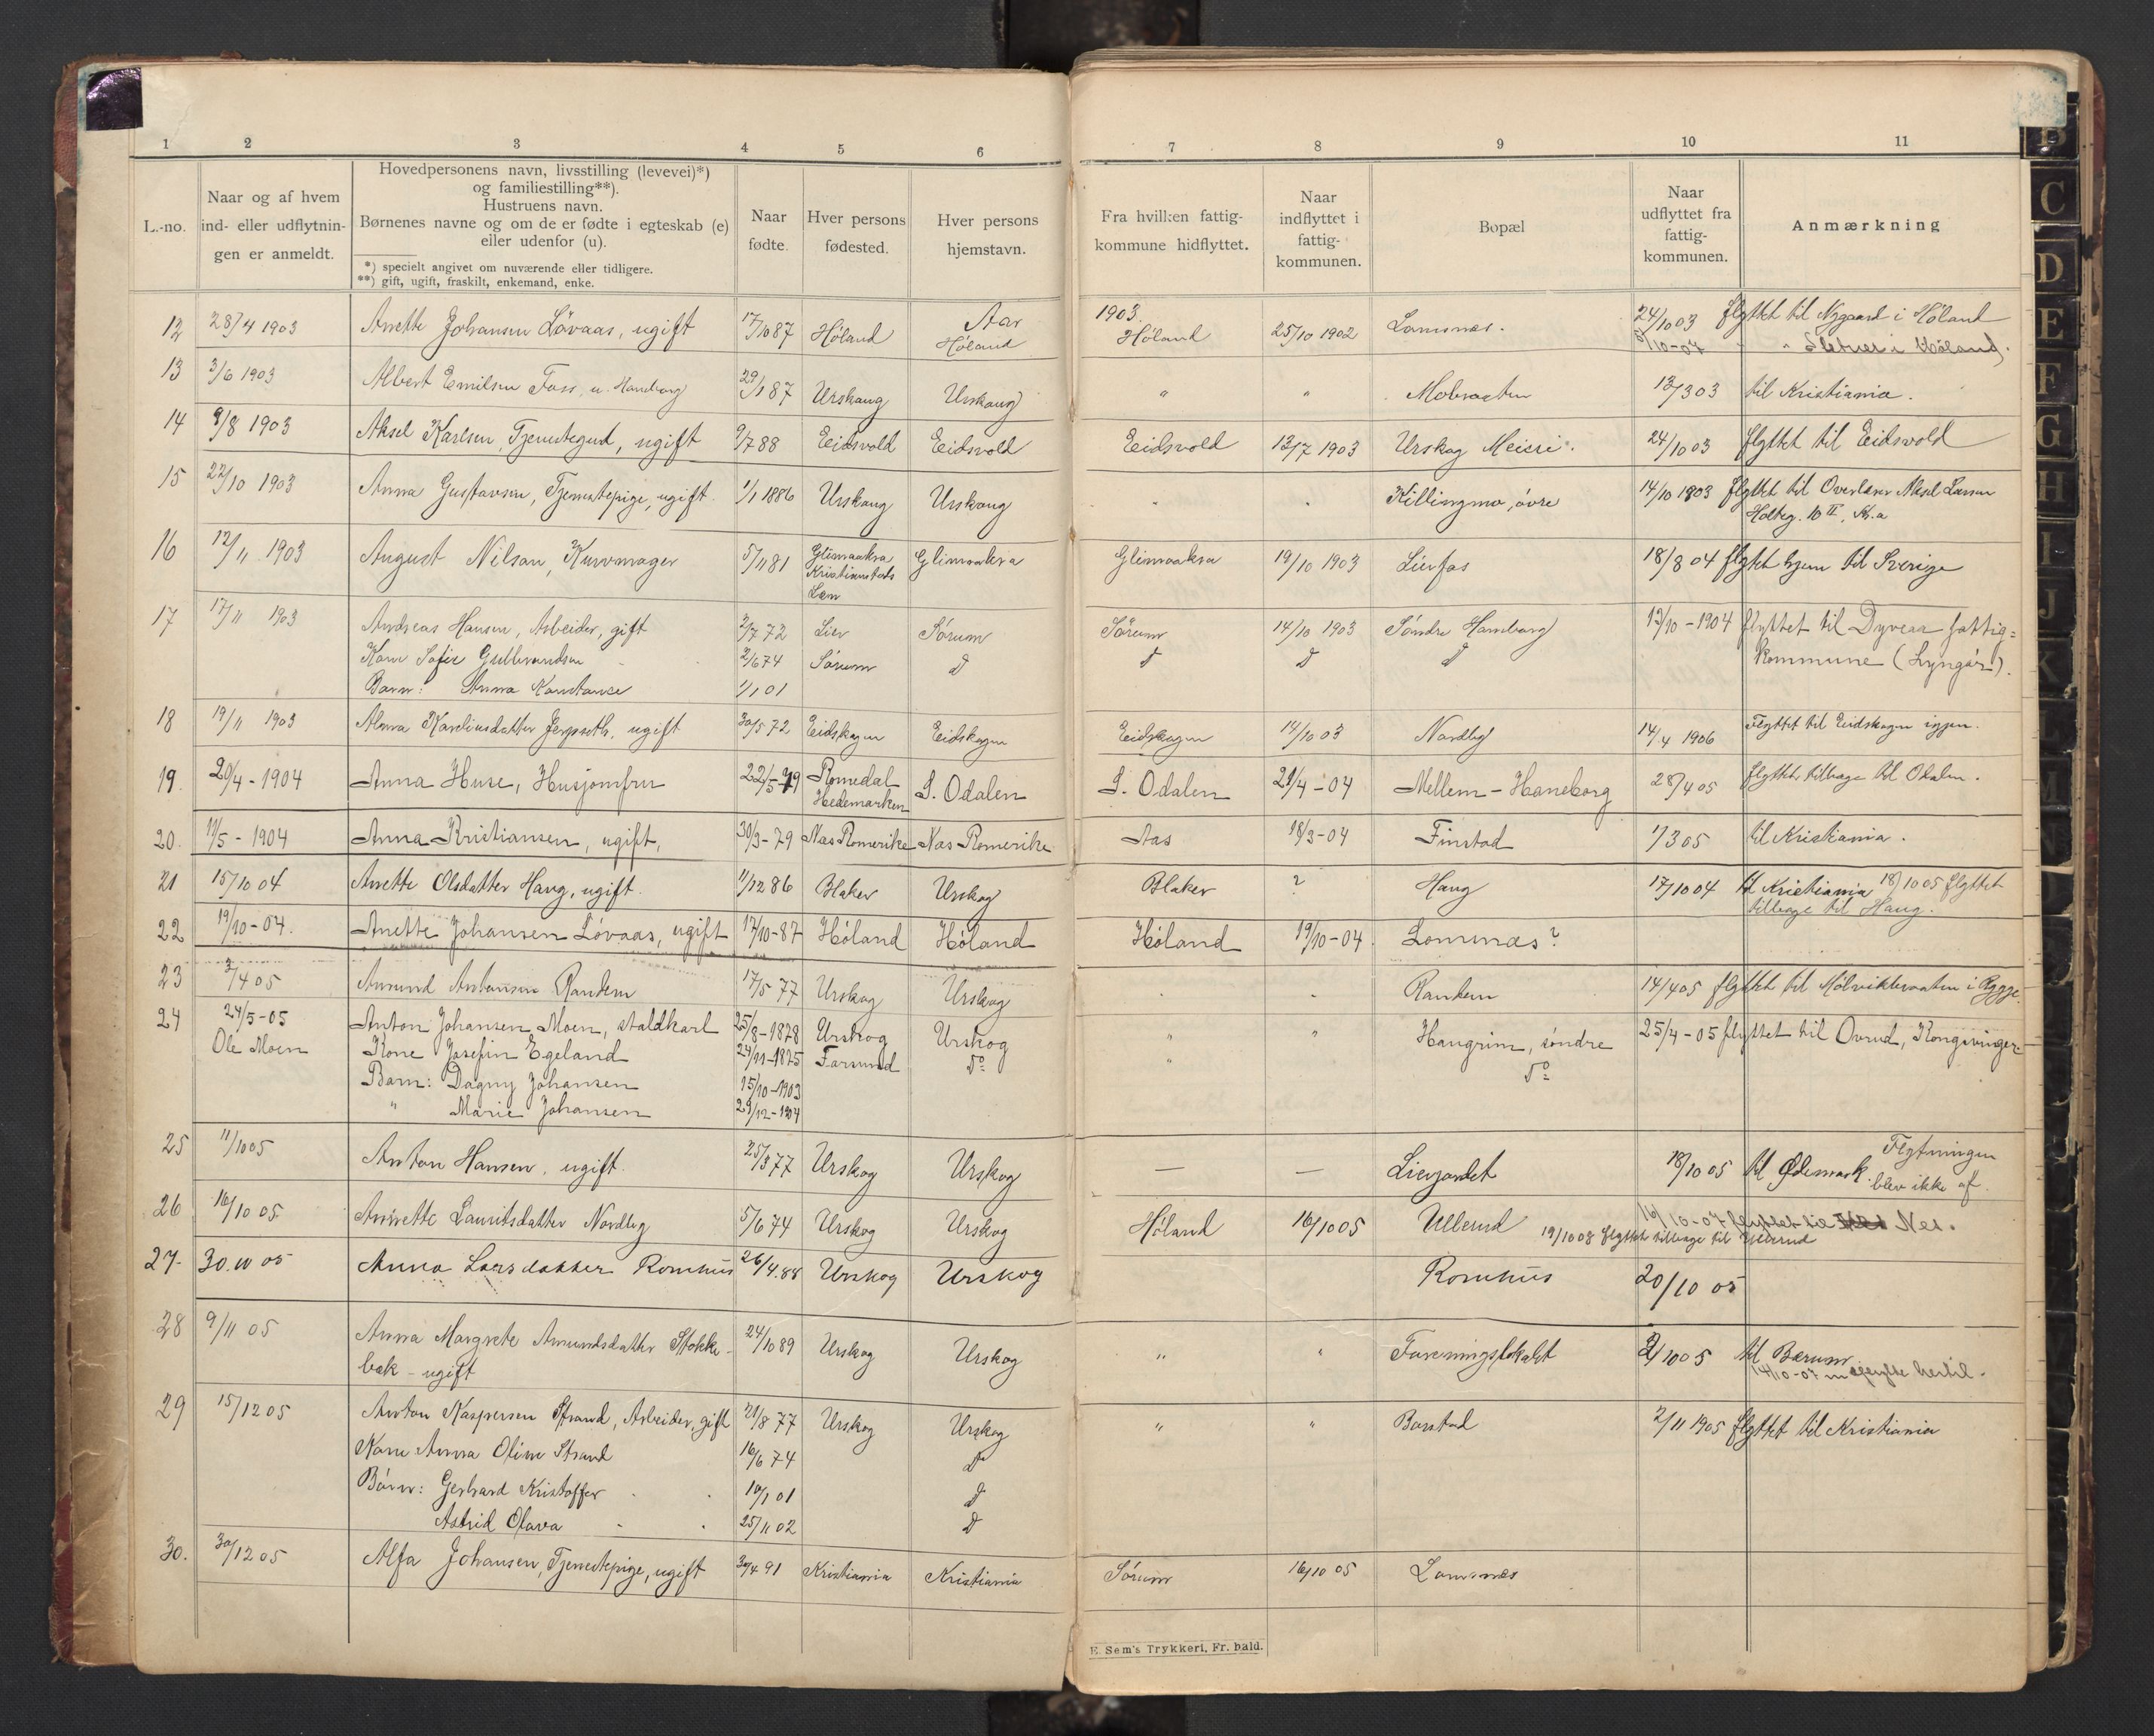 1 2 3 4 5 6 7 8 9 10 11
L.-no.
Naar og af hvem
ind- eller udflytnin-
gen er anmeldt.
Hovedpersonens navn, livsstilling (levevei)*)
og familiestilling**).
Hustruens navn.
Børnenes navne og om de er fødte i egteskab (e)
eller udenfor (u).
*) specielt angivet om nuværende eller tidligere.
**) gift, ugift, fraskilt, enkemand, enke.
Naar
fødte.
Hver persons
fødested.
Hver persons
hjemstavn.
Fra hvilken fattig-
kommune hidflyttet.
Naar
indflyttet i
fattig-
kommunen.
Bopæl
Naar
udflyttet fra
fattig-
kommunen.
Anmærkning
12 28/4 1903 Anette Johansen Lövaas, ugift 17/10 87 Höland Aar Höland 1903. Höland 25/10 1902 Lomsnæs. 24/10 03 flyttet til Nygaard i Höland
/10-04 " " i Höland.
13 3/6 1903 Albert Emilsen Foss, u. Haneborg 29/1 87 Urskaug Urskaug " " 13/3 03 til Kristiania.
14 9/8 1903 Aksel Karlsen, Tjenestegut, ugift 9/7 88 Eidsvold Eidsvold Eidsvold 13/7 1903 Urskog Meieri. 24/10 03 flyttet til Eidsvold
15 22/10 1903 Anna Gustavsen, Tjenestepige, ugift. 1/1 1886 Urskaug Urskaug " " Killingmo, övre 14/10 1903 flyttet til Overlærer Aksel Larsen
Holteg. 10 II, Kr.a
16 12/11 1903 August Nilson, Kurvmager 5/11 81 Glimaakra Glimaakra Glimaakra 19/10 1903 Lierfos 18/8 04 flyttet hjem til Sverige
Kristianstads
Len
17 17/11 1903 Andreas Hansen, Arbeider, gift 2/7 72 Lier Sörum Sörum 14/10 1903 Söndre Hamborg 12/10-1904 flyttet til Dyvaag fattig=
Kone Sofie Gulbrandsen 2/6 74 Sörum d d d d kommune (Lyngör).
Barn: Anna Konstanse 1/1 01
18 19/11 1903 Alma Karoliusdatter Jerpseth, ugift 30/5 72 Eidskogen Eidskogen Eidskogen 14/10 03 Nordby 14/4 1906 Flyttet til Eidskogen igjen.
19. 20/4-1904 Anna Huse, Husjomfru 22/5-79 Romedal S. Odalen S. Odalen 21/4-04 Mellem-Haneborg 28/4 05 flyttet tilbage til Odalen.
Hedemarken
20. 11/5-1904 Anna Kristiansen, ugift, 30/3-79 Næs Romerike Næs Romerike Aas 18/3-04 Finstad 1/3 05 til Kristiania.
21 15/10 04 Anette Olsdatter Haug, ugift. 11/12 86 Blaker Urskog Blaker ? Haug 17/10 04 til Kristiania 18/10 05 flyttet
tilbage til Haug.
22 19/10-04. Anette Johansen Lövaas, ugift 17/10-87 Höland Höland Höland 19/10-04. Lomnæs?
23 3/4 05 Amund Antonsen Rankem 17/5 77 Urskog Urskog " " Rankem 14/4 05 flyttet til i Rygge.
24 24/5-05 Anton Johansen Moen, staldkarl 25/8-1878 Urskog Urskog " " Hangrim, söndre 25/4-05 flyttet til Ovrud, Kongsvinger.
Ole Moen Kone Josefin Egeland 24/11-1875 Farsund Do " Do
Barn: Dagny Johansen 15/10-1903
" Marie Johansen 29/12-1904
25 11/10 05 Anton Hansen, ugift. 25/3 77 Urskog Urskog — — Lierjordet 18/10 05 til Ødemark. Flytningen
blev ikke af.
26 16/10 05 Annette Lauritsdatter Nordby 5/6 74 Urskog Urskog Höland 16/10 05 Ullerud 16/10-07 flyttet til Nes.
19/10 08 flyttet tilbage til Ullerud
27. 30.10 05 Anna Larsdatter Romhus 26/4.88 Urskog Urskog Romhus 20/10 05
28 9/11 05 Anna Margrete Amundsdatter Stokke- 24/10 89 Urskog Urskog " " Foreningslokalet 2/10 05 til Bærum
bæk - ugift 14/10-07 hertil.
29 15/12 05 Anton Kaspersen Strand, Arbeider, gift 21/8 77 Urskog Urskog " " Borstad 2/11 1905 flyttet til Kristiania
Kone Anna Oline Strand 16/6 74 d
Börn: Gerhard Kristoffer 10/1 01 d
Astrid Olava 25/11 02 d
30. 30/12 05 Alfa Johansen, Tjenestepige, ugift 30/4 91 Kristiania Kristiania Sörum 16/10 05 Lomsnæs
E. Sem's Trykkeri, Fr.hald.
B
C
D
E
F
G
H
I
J
K
M
N